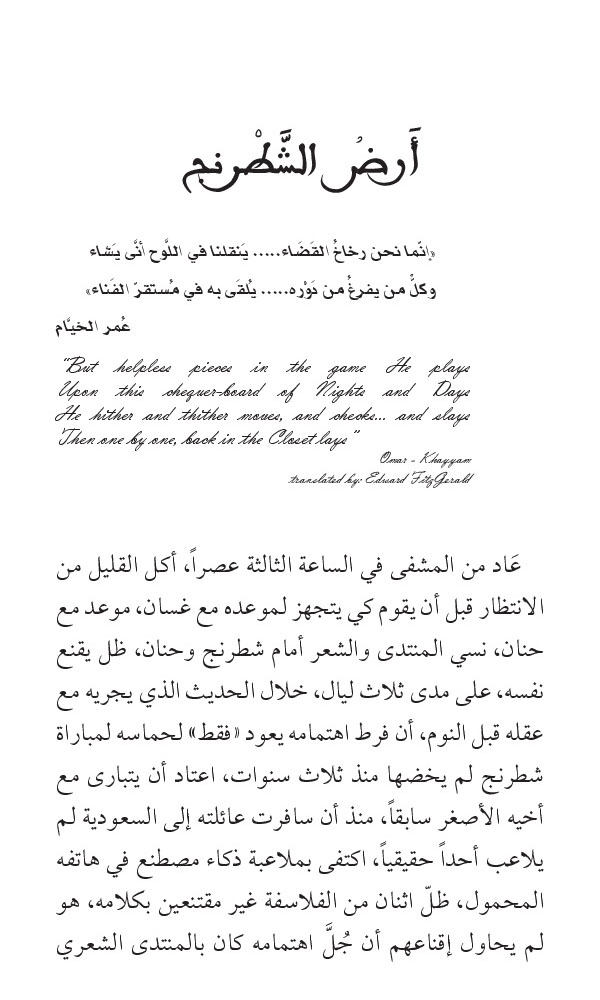 أَرضُ الشَّطْرنج
«إنّما نحن رخاخُ القَضَاء..... يَنقلنا في اللَّوح أنَّى يَشاء
وكلُّ من يفرغُ من دَوْره..... يُلقَى به في مُستقرّ الفَناء»
عُمر الخيَّام
"But helpless pieces in the game He plays
Upon this chequer-board of Nights and Days
He hither and thither moves, and checks... and slays
Then one by one, back in the Closet lays"
Omar - Khayyam
translated by: Edward FitzGerald
عَاد من المشفى في الساعة الثالثة عصراً، أكل القليل من
الانتظار قبل أن يقوم كي يتجهز لموعده مع غسان، موعد مع
حنان، نسي المنتدى والشعر أمام شطرنج وحنان، ظل يقنع
نفسه، على مدى ثلاث ليال، خلال الحديث الذي يجريه مع
عقله قبل النوم، أن فرط اهتمامه يعود «فقط» لحماسه لمباراة
شطرنج لم يخضها منذ ثلاث سنوات، اعتاد أن يتبارى مع
أخيه الأصغر سابقاً، منذ أن سافرت عائلته إلى السعودية لم
يلاعب أحداً حقيقياً، اكتفى بملاعبة ذكاء مصطنع في هاتفه
المحمول، ظلّ اثنان من الفلاسفة غير مقتنعين بكلامه، هو
لم يحاول إقناعهم أن جُلَّ اهتمامه كان بالمنتدى الشعري